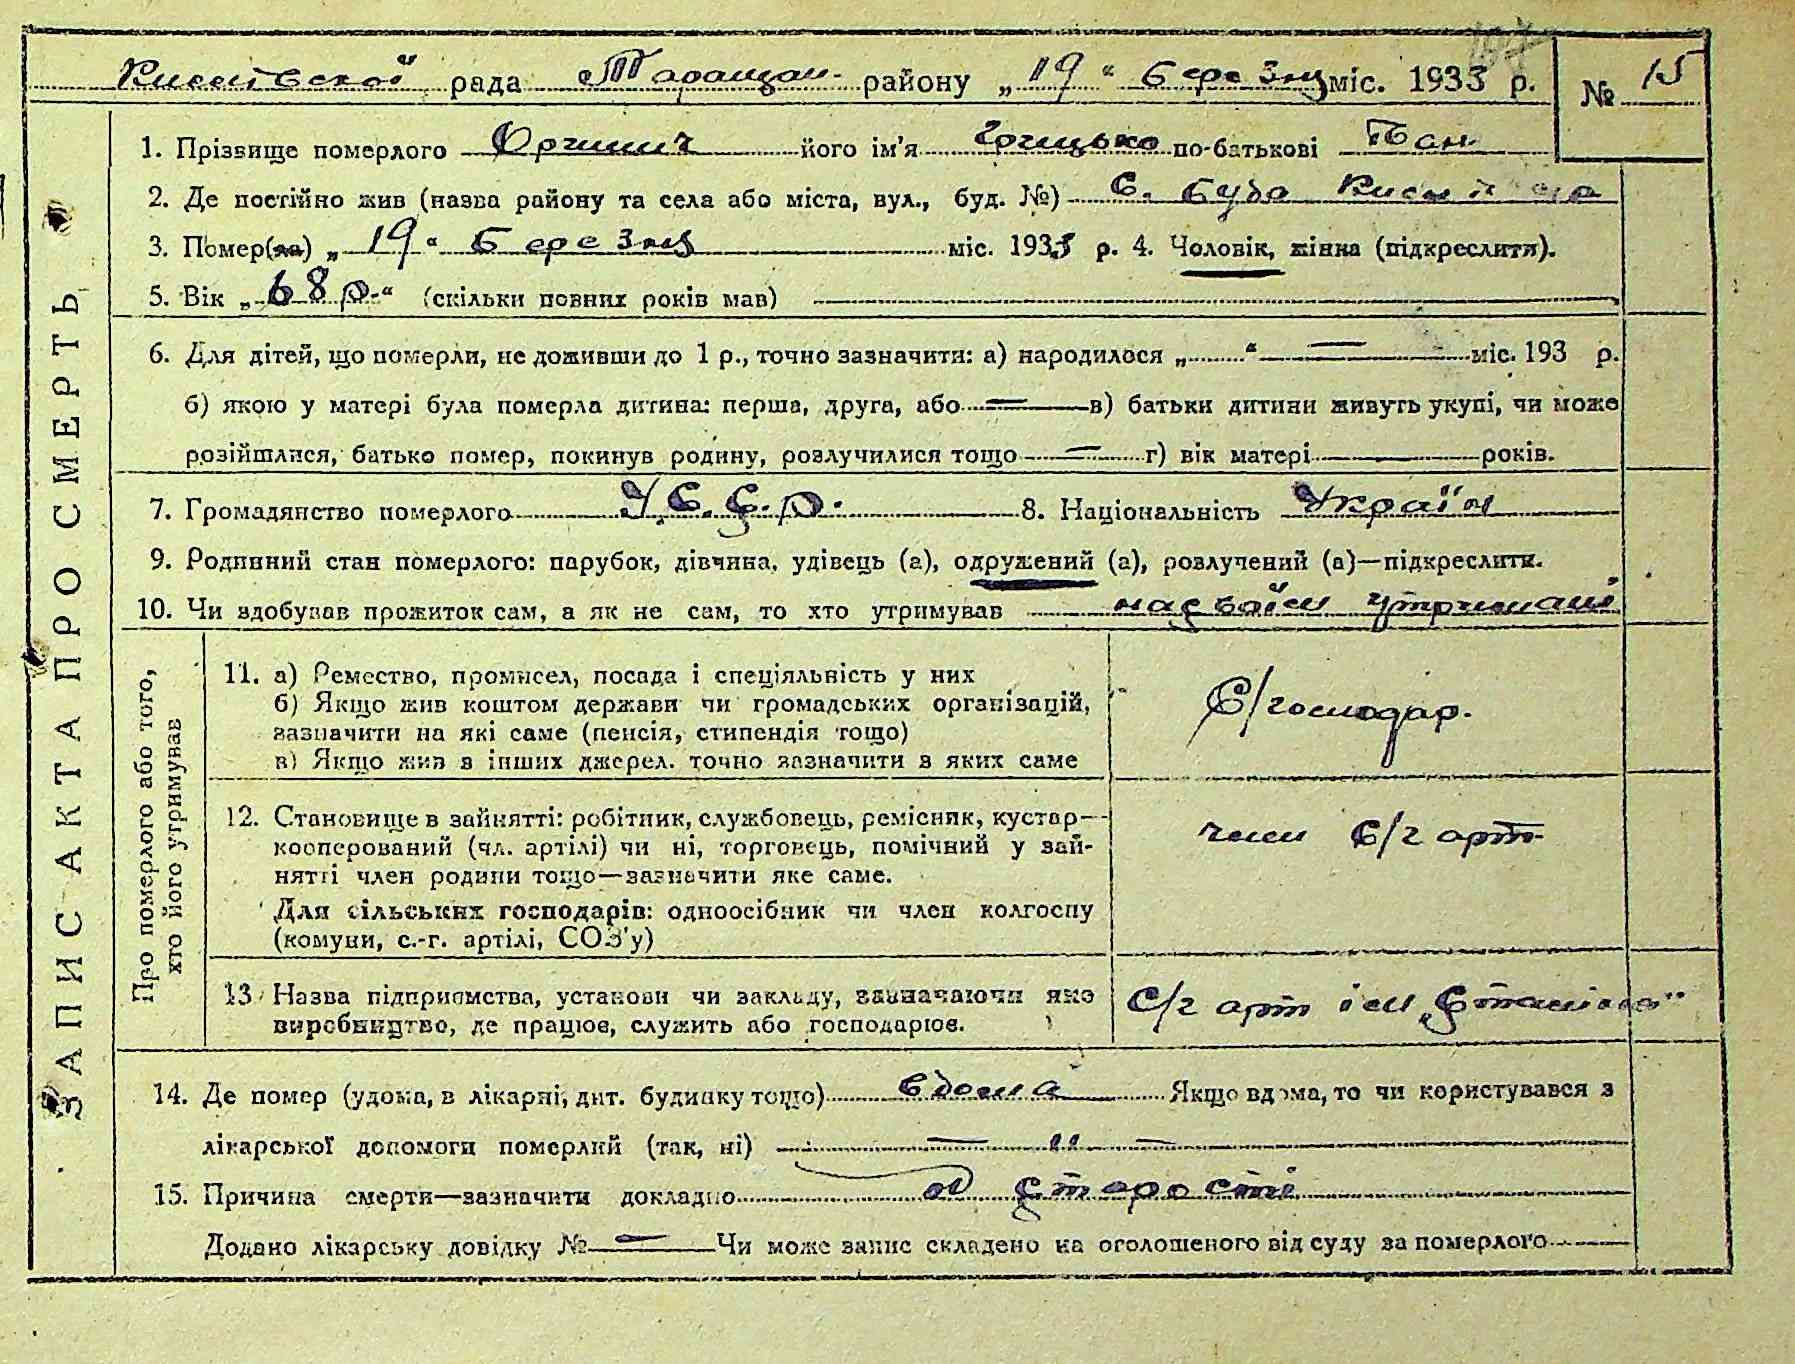 рада Таращан. району „19“ березня міс. 1933 р. № 15
ЗАПИС АКТА ПРО СМЕРТЬ
1. Прізвище померлого його ім'я Грицько по-батькові Іван
2. Де постійно жив (назва району та села або міста, вул., буд. №) С. Буда
3. Помер(ла) „19“ березня міс. 1933 р. 4. Чоловік, жінка (підкреслити).
5. Вік „68 р.“ (скільки повних років мав)
6. Для дітей, що померли, не доживши до 1 р., точно зазначити: а) народилося „ “ — міс. 193 р.
б) якою у матері була померла дитина: перша, друга, або — в) батьки дитини живуть укупі, чи може
розійшлися, батько помер, покинув родину, розлучилися тощо — г) вік матері — років.
7. Громадянство померлого У.С.С.р. 8. Національність Україн
9. Родинний стан померлого: парубок, дівчина, удівець (а), одружений (а), розлучений (а)—підкреслити.
10. Чи здобував прожиток сам, а як не сам, то хто утримував на своїм утриманні
Про померлого або того,
хто його утримував
11. а) Ремество, промисел, посада і спеціяльність у них
б) Якщо жив коштом держави чи громадських організацій,
зазначити на які саме (пенсія, стипендія тощо)
в) Якщо жив з інших джерел. точно зазначити з яких саме
С/господар.
12. Становище в зайнятті: робітник, службовець, ремісник, кустар—
кооперований (чл. артілі) чи ні, торговець, помічний у зай-
нятті член родини тощо—зазначити яке саме.
Для сільських господарів: одноосібник чи член колгоспу
(комуни, с.-г. артілі, СОЗ'у)
член С/г арт
13. Назва підприємства, установи чи закладу, зазначаючи яке
виробництво, де працює, служить або господарює.
С/г арт ім
14. Де помер (удома, в лікарні, дит. будинку тощо) вдома Якщо вдома, то чи користувався з
лікарської допомоги померлий (так, ні) — " —
15. Причина смерти—зазначити докладно од старости
Додано лікарську довідку № — Чи може запис складено на оголошеного від суду за померлого —